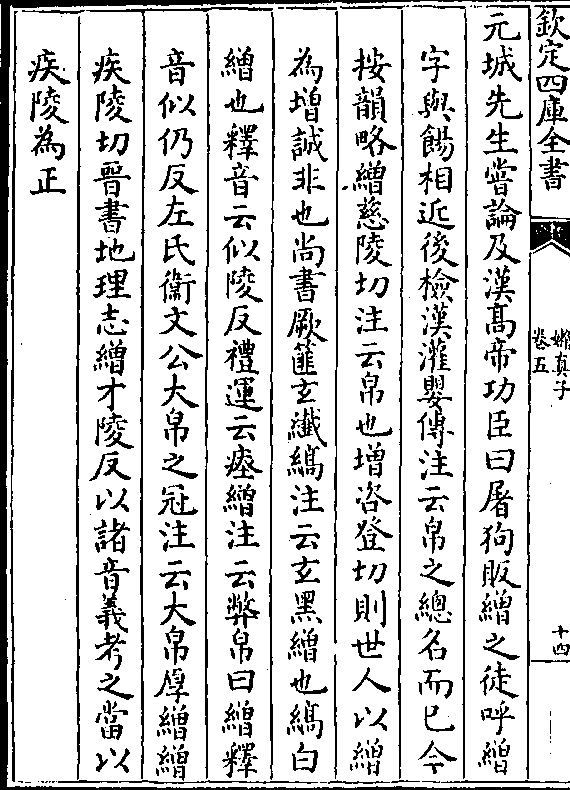 欽定四庫全書
嬾真子
卷五
十四
元城先生嘗論及漢髙帝功臣曰屠狗販繒之徒呼繒
字與餳相近後檢漢灌嬰傳注云帛之總名而已今
按韻略繒慈陵切注云帛也增咨登切則世人以繒
為增誠非也尚書厥篚玄纖縞注云玄黑繒也縞白
繒也釋音云似陵反禮運云瘞繒注云幣帛曰繒釋
音似仍反左氏衞文公大帛之冠注云大帛厚繒繒
疾陵切晉書地理志繒才陵反以諸音義考之當以
疾陵為正